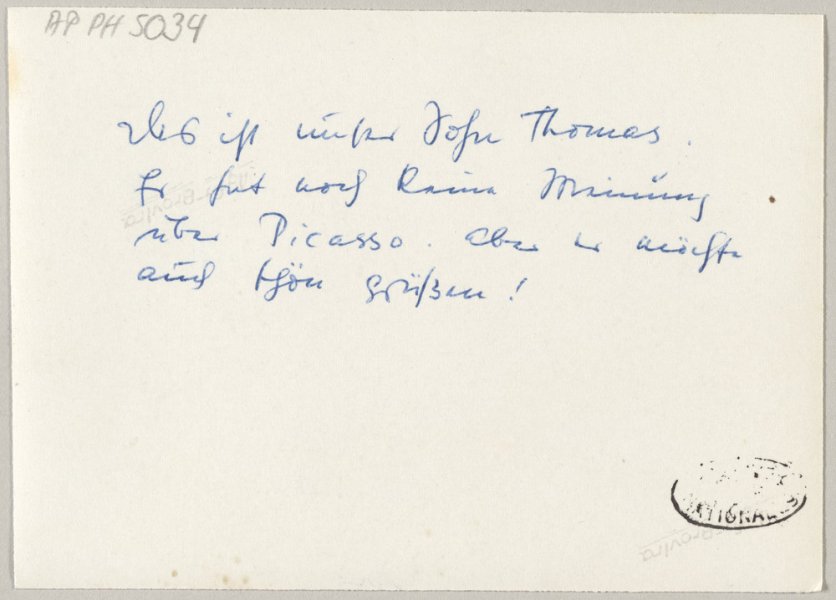 AP PH 5034
Das ist unser Sohn Thomas.
Er hat noch keine Meinung
über Picasso. Aber er möchte
auch schön grüßen!
NATIONALES